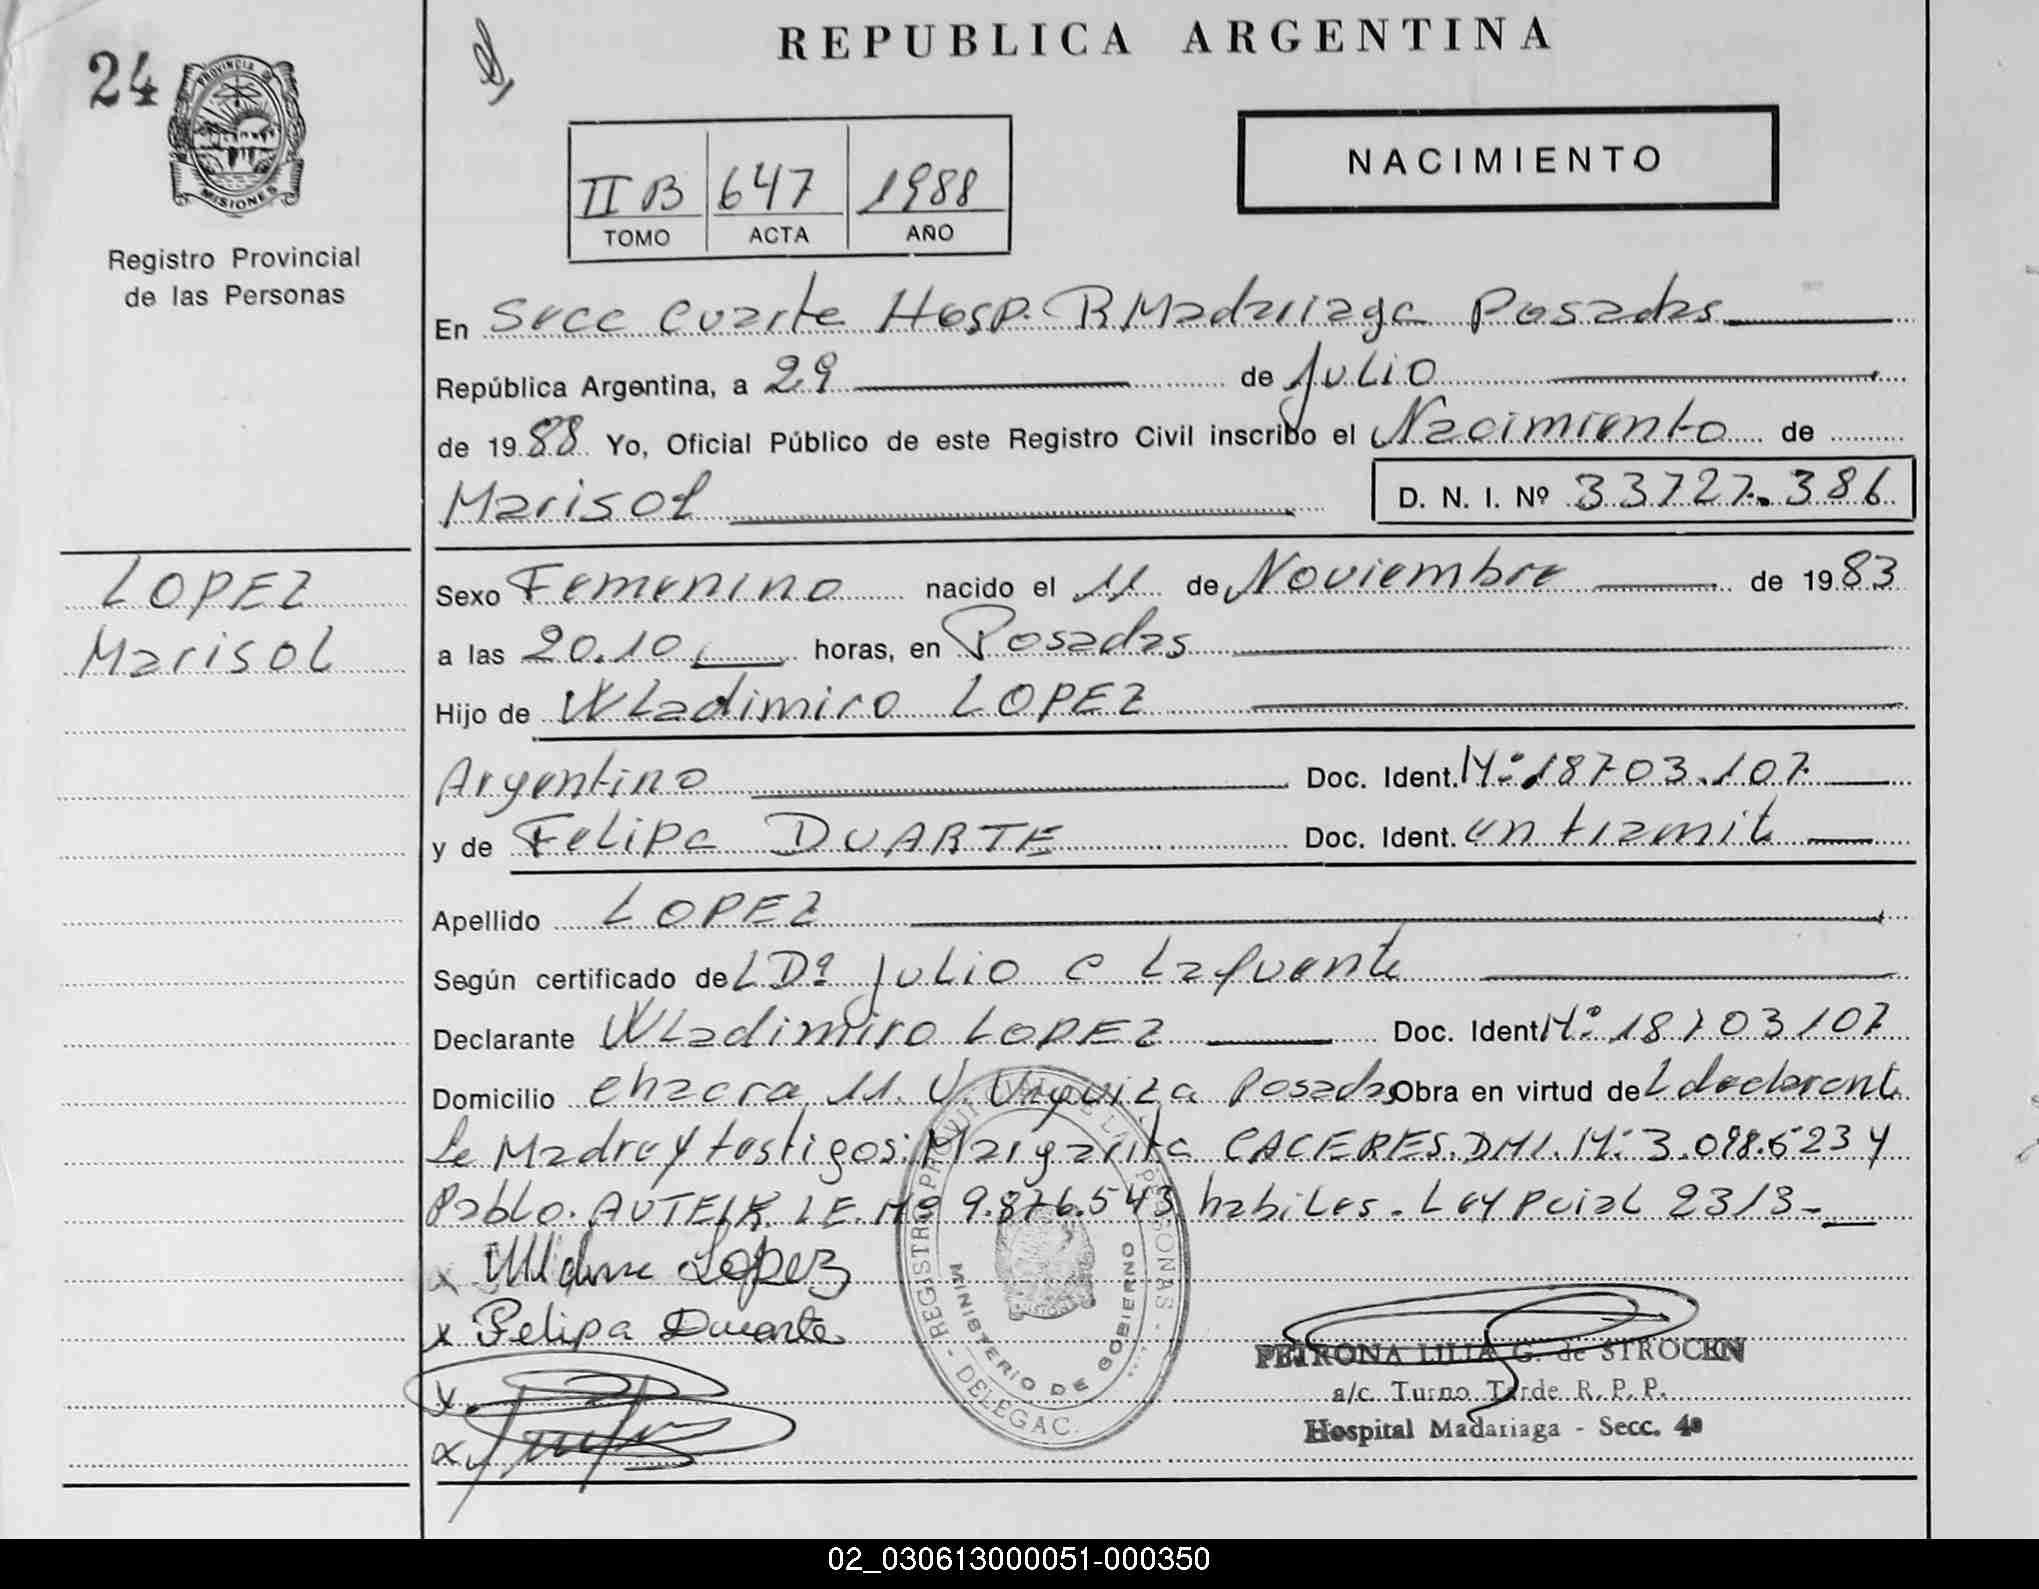 24
REPUBLICA ARGENTINA
PROVINCIA DE
MISIONES
Registro Provincial
de las Personas
II B 647 1988
TOMO ACTA AÑO
NACIMIENTO
En Secc Cuarta Hosp. R Madariaga Posadas
República Argentina, a 29 de Julio
de 1988 Yo, Oficial Público de este Registro Civil inscribo el Nacimiento de
Marisol D. N. I. Nº 33727.386
LOPEZ
Marisol
Sexo Femenino nacido el 11 de Noviembre de 1983
a las 20.10 horas, en Posadas
Hijo de Wladimiro LOPEZ
Argentino Doc. Ident. Nº 18703.107
y de Felipa DUARTE Doc. Ident. en tramite
Apellido LOPEZ
Según certificado de L Dº Julio C Lafuente
Declarante Wladimiro LOPEZ Doc. Ident Nº 18703107
Domicilio Chacra 11. V. Urquiza Posadas Obra en virtud de L declarante
La Madre y testigos: Margarita CACERES. DNI. Nº 3.098.623 y
Pablo. LE. Nº 9.876.543 habiles. Ley Pcial 2313-
x Lopez
x Felipa Duarte
x
x
REGISTRO PROVINCIAL DE LAS PERSONAS - DELEGAC.
MINISTERIO DE GOBIERNO
PETRONA LILIA G. de STROCEN
a/c. Turno Tarde R. P. P.
Hospital Madariaga - Secc. 4ª
02_030613000051-000350